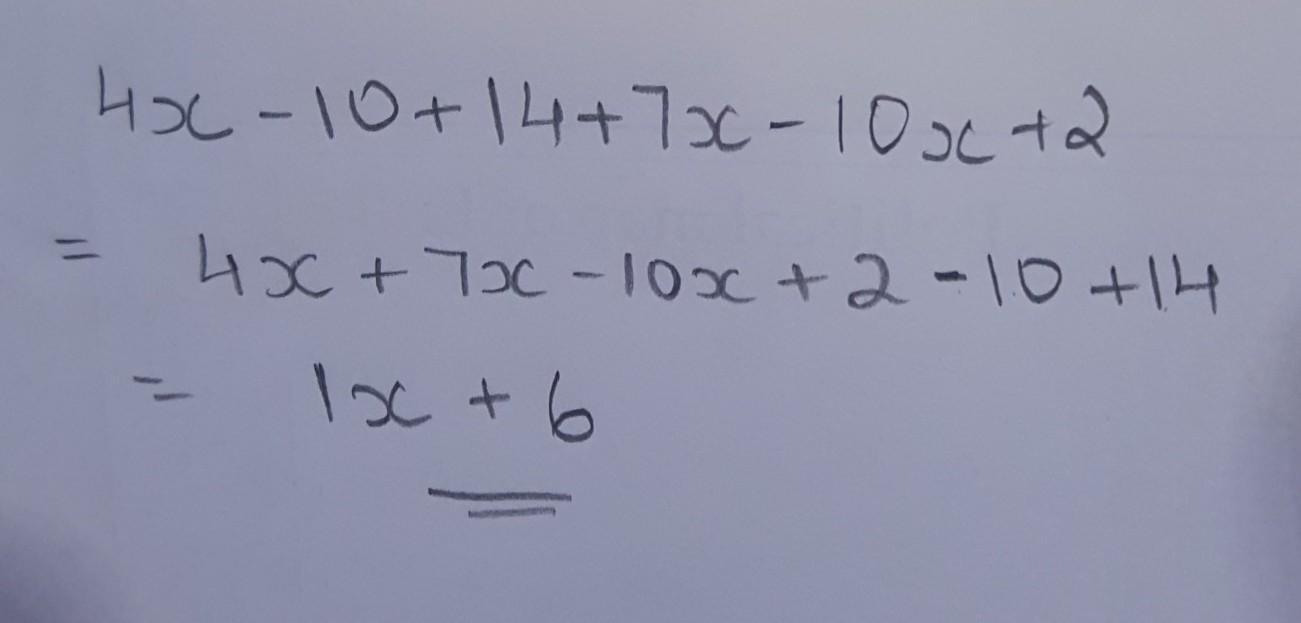 4x - 10 + 14 + 7x - 10x + 2
= 4x + 7x - 10x + 2 - 10 + 14
= 1x + 6